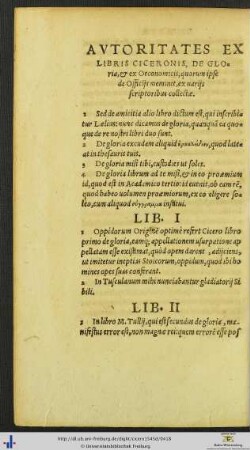 AVTORITATES EX
LIBRIS CICERONIS, DE GLO-
ria, & ex Oeconomicis, quorum ipse
de Officijs meminit, ex varijs
scriptoribus collectæ.
Sed de amicitia alio libro dictum est, qui inscribi
tur Lælius: nunc dicamus de gloria, quanquã ea quo
que de re nostri libri duo sunt.
2 De gloria excudam aliquid quod late
at in thesauris tuis.
3 De gloria misi tibi, custodies ut soles.
4 De gloria librum ad te misi, & in eo proœmium
id, quod est in Academico tertio: id euenit, ob eam rẽ,
quod habeo uolumen proœmiorum, ex eo eligere so-
leo, cum aliquod institui.
LIB. I
Oppidorum Originẽ optimè refert Cicero libro
primo de gloria, eamq; appellationem usurpatione ap
pellatam esse existimat, quod opem darent, adijciens,
ut imitetur ineptias Stoicorum, oppidum, quod ibi ho
mines opes suas conferant.
2 In Tusculanum mihi nunciabantur gladiatorij Si
bili.
LIB. II
In libro M. Tullij, qui est secundus de gloria, ma
nifestus error est, non magnæ rei: quem errorẽ esse pos
http://dl.ub.uni-freiburg.de/diglit/cicero1545d/0418
© Universitätsbibliothek Freiburg